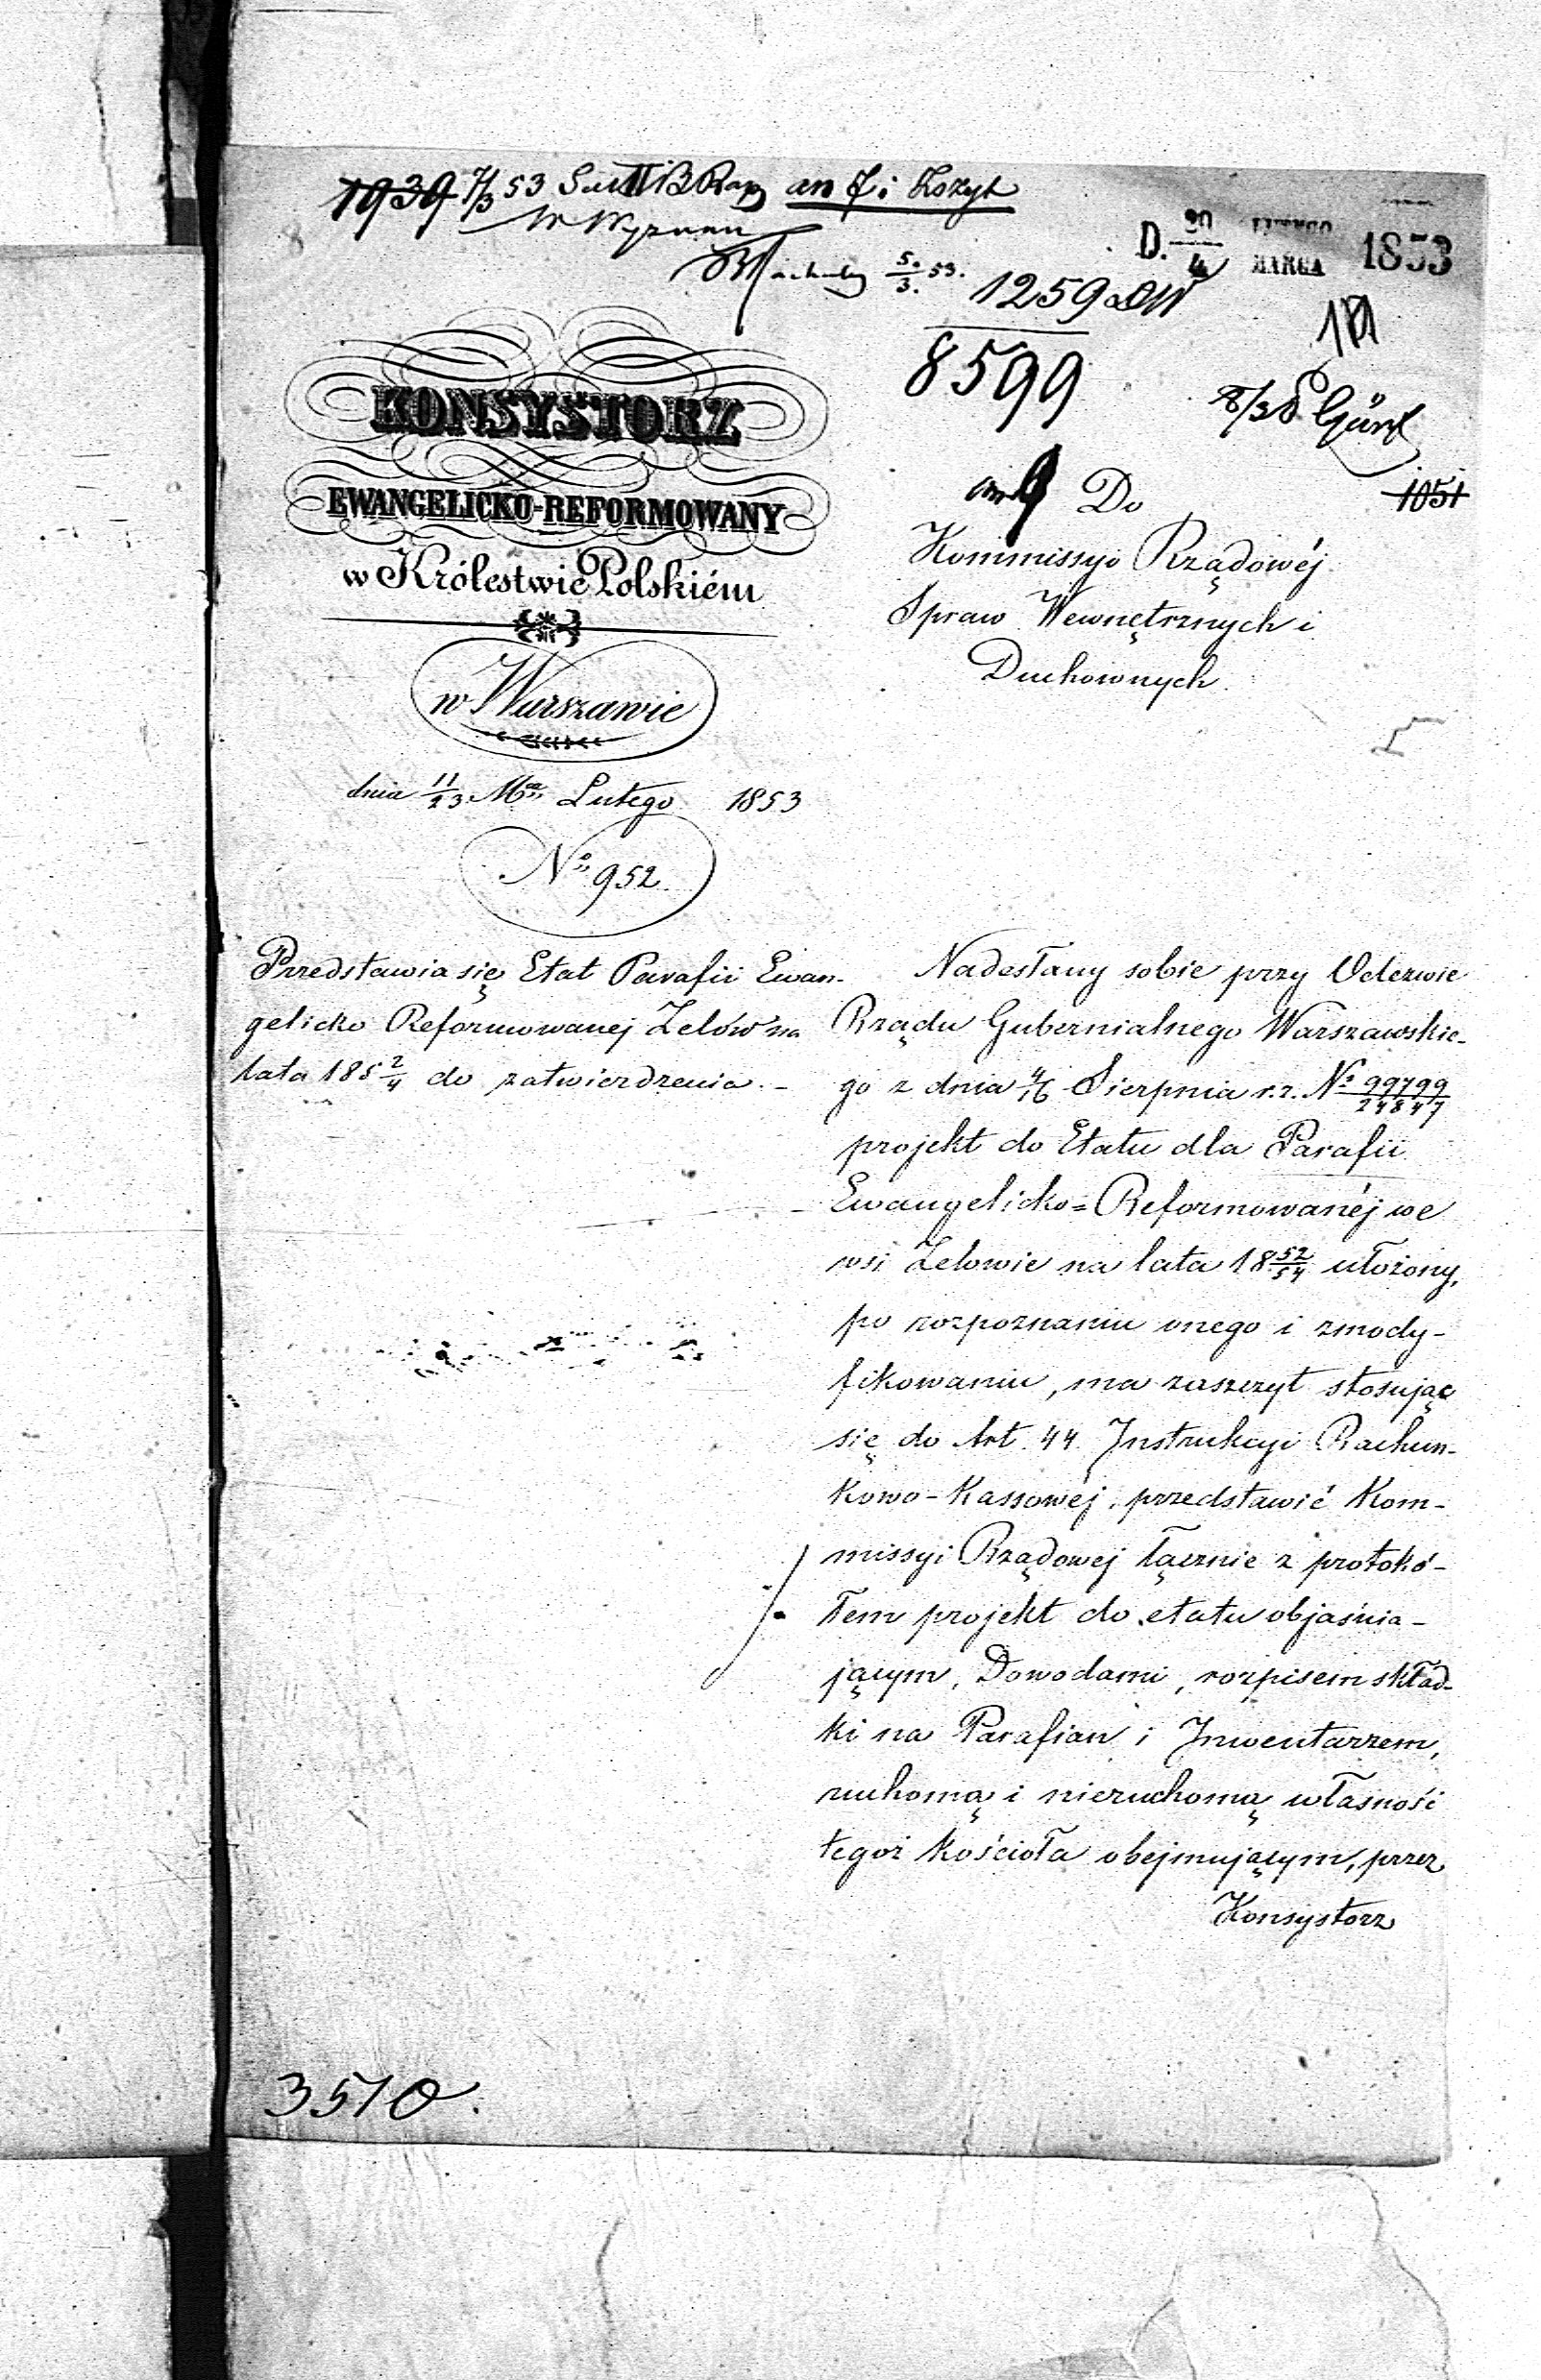 1939 7/3 53 an 7 i Zszyt
5./3. 53.
D. 20/4 LUTEGO/MARCA 1853
1259
8599
1051
KONSYSTORZ
EWANGELICKO-REFORMOWANY
w Królestwie Polskiém
w Warszawie
dnia 11/23 Mca Lutego 1853
No 952.
Przedstawia się Etat Parafii Ewan-
gelicko Reformowanej Zelów na
lata 185 2/4 do zatwierdzenia. -
Do
Kommissyi Rządowéj
Spraw Wewnętrznych i
Duchownych
Nadesłany sobie przy Odezwie
Rządu Gubernialnego Warszawskie-
go z dnia 4/16 Sierpnia r.z. No 99799/24847
projekt do Etatu dla Parafii
Ewangelicko=Reformowanéj we
wsi Zelowie na lata 18 52/54 ułożony,
po rozpoznaniu onego i zmody-
fikowaniu, ma zaszczyt stosując
się do Art. 44 Instrukcyi Rachun-
kowo-Kassowéj, przedstawić Kom-
missyi Rządowej łącznie z protokó-
łem projekt do etatu objaśnia-
jącym, Dowodami, rozpisem skład-
ki na Parafian i Inwentarzem,
ruchomą i nieruchomą własność
tegoż kościoła obejmującym, przez
Konsystorz
3510.